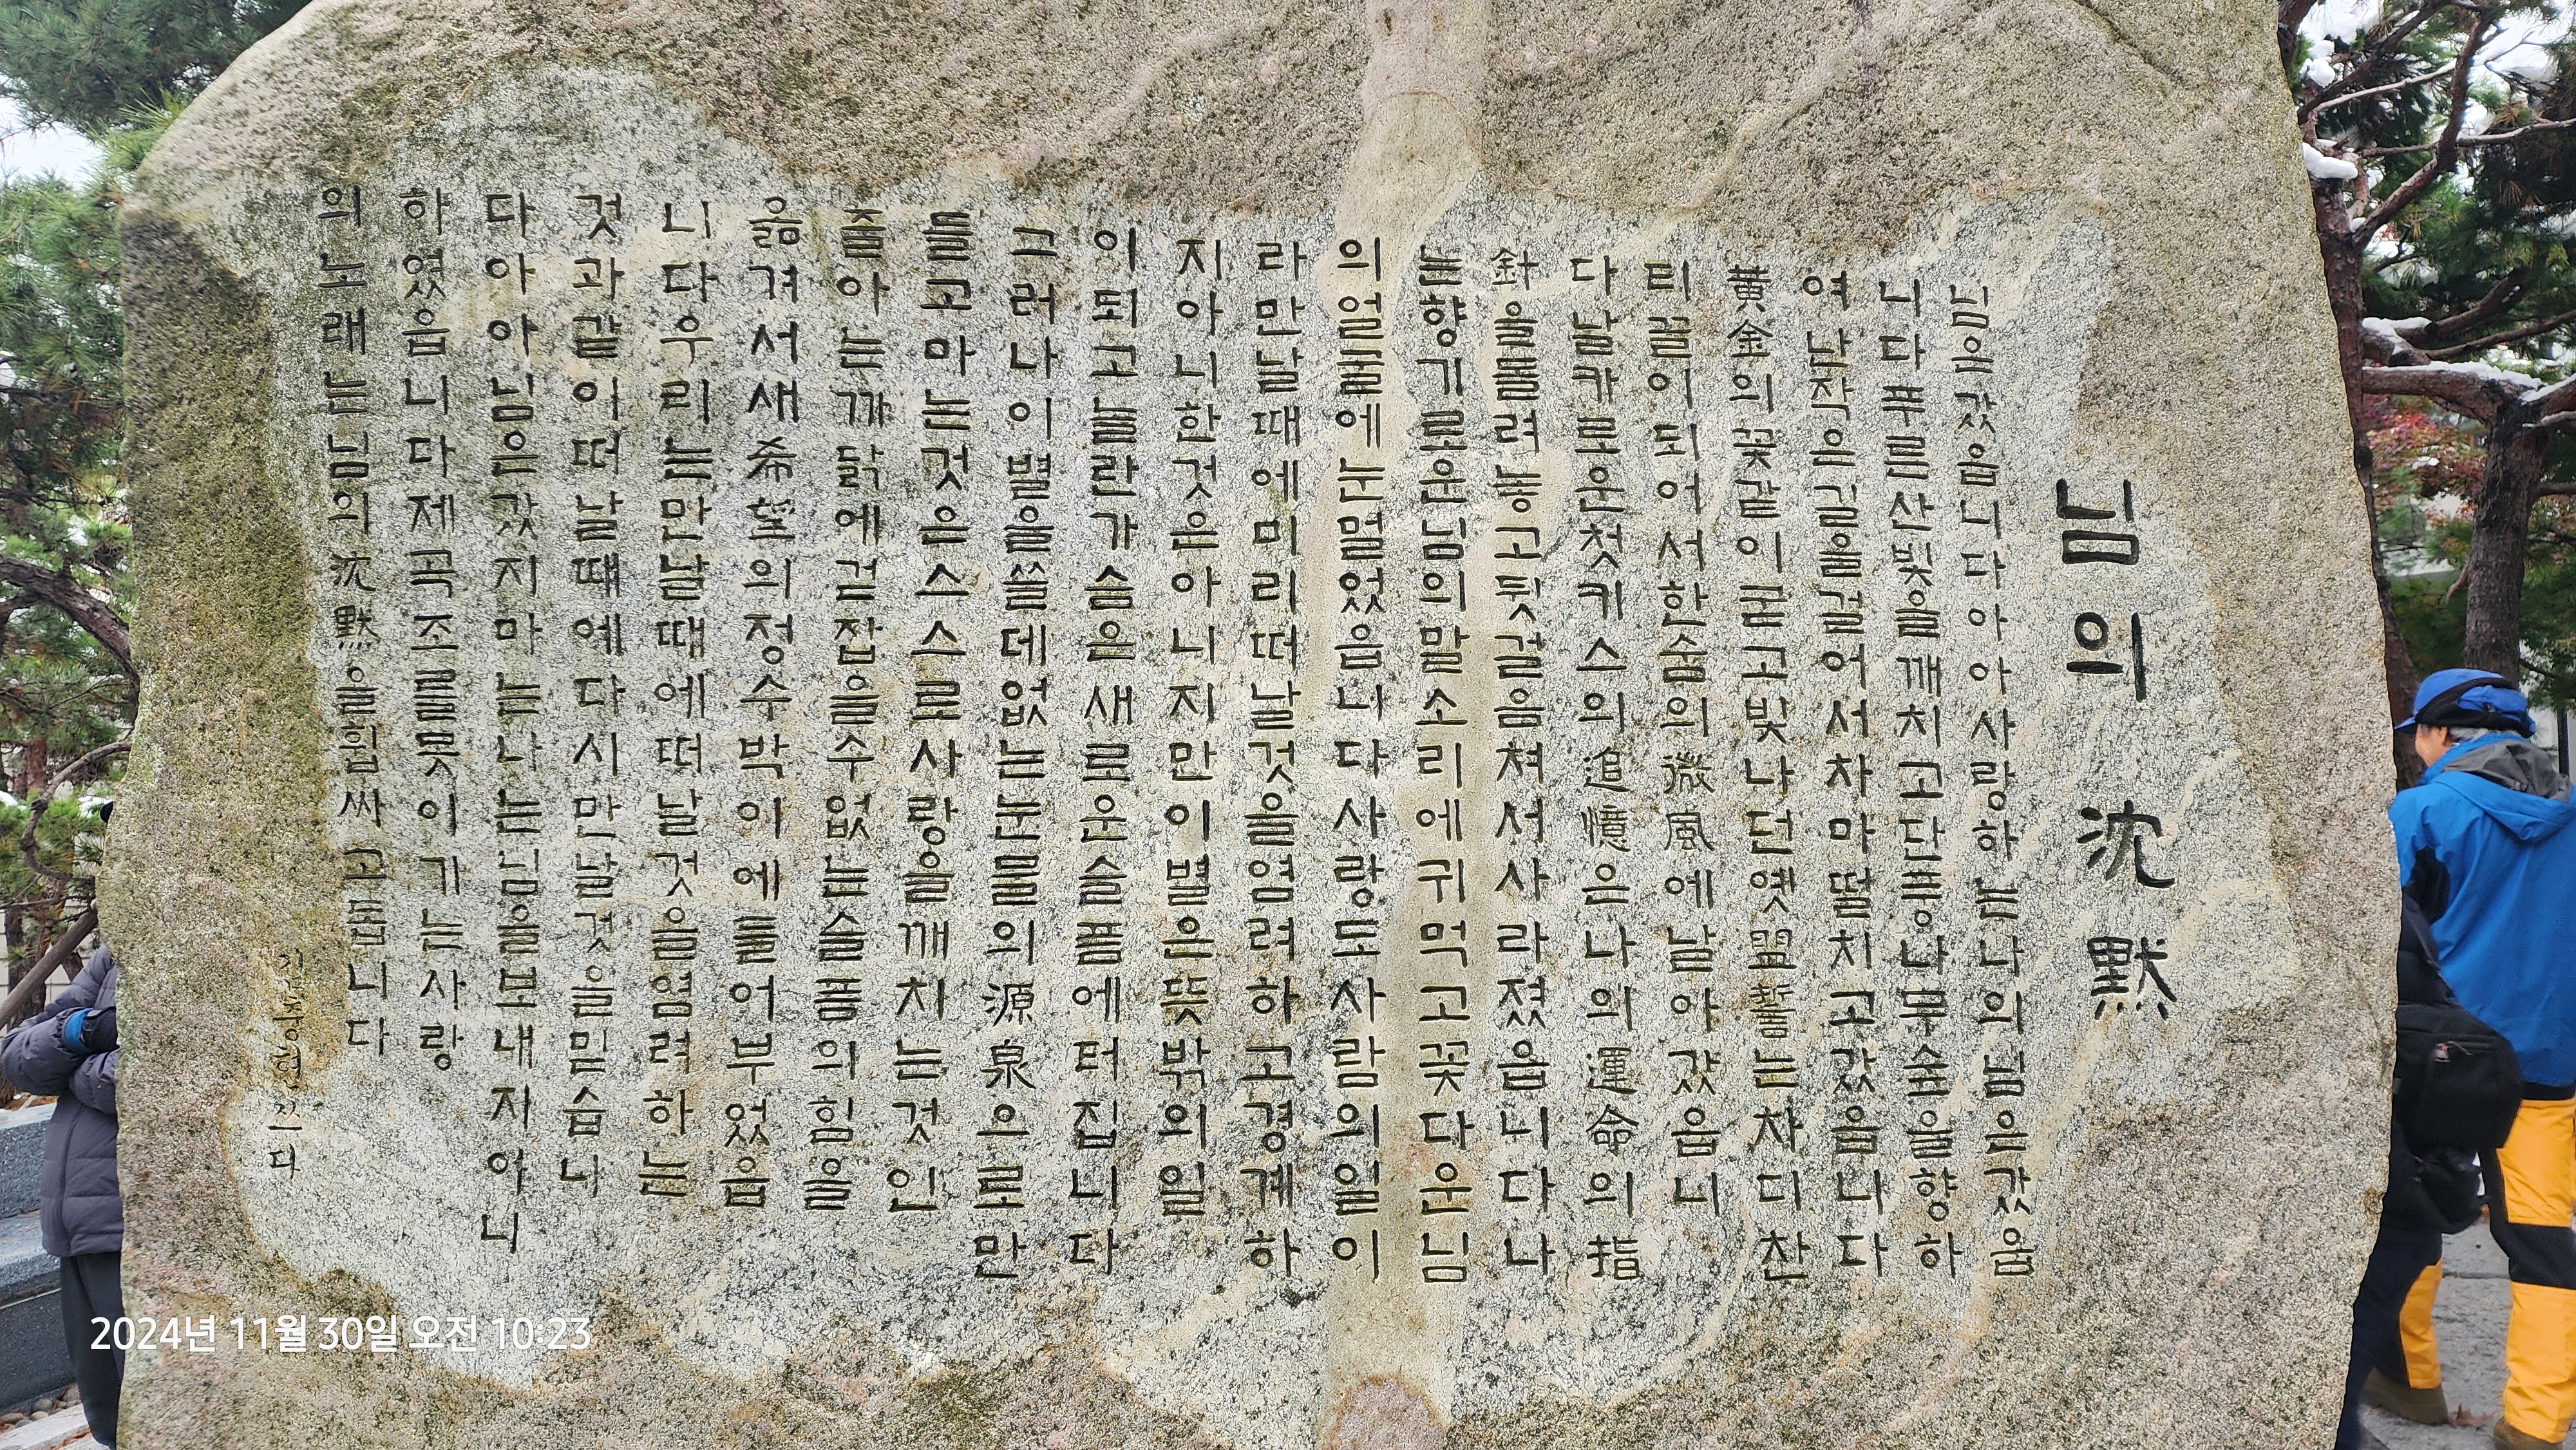 님의 沈默
님은갔읍니다아아사랑하는나의님은갔읍
니다푸른산빛을깨치고단풍나무숲을향하
여난작은길을걸어서차마떨치고갔읍니다
黃金의꽃같이굳고빛나던옛盟誓는차디찬
티끌이되어서한숨의微風에날아갔읍니
다날카로운첫키스의追憶은나의運命의指
針을돌려놓고뒷걸음쳐서사라졌읍니다나
는향기로운님의말소리에귀먹고꽃다운님
의얼굴에눈멀었읍니다사랑도사람의일이
라만날때에미리떠날것을염려하고경계하
지아니한것은아니지만이별은뜻밖의일
이되고놀란가슴은새로운슬픔에터집니다
그러나이별을쓸데없는눈물의源泉으로만
들고마는것은스스로사랑을깨치는것인
줄아는까닭에걷잡을수없는슬픔의힘을
옮겨서새希望의정수박이에들어부었읍
니다우리는만날때에떠날것을염려하는
것과같이떠날때에다시만날것을믿습니
다아아님은갔지마는나는님을보내지아니
하였읍니다제곡조를못이기는사랑
의노래는님의沈默을휩싸고돕니다
쓰다
2024년 11월 30일 오전 10:23